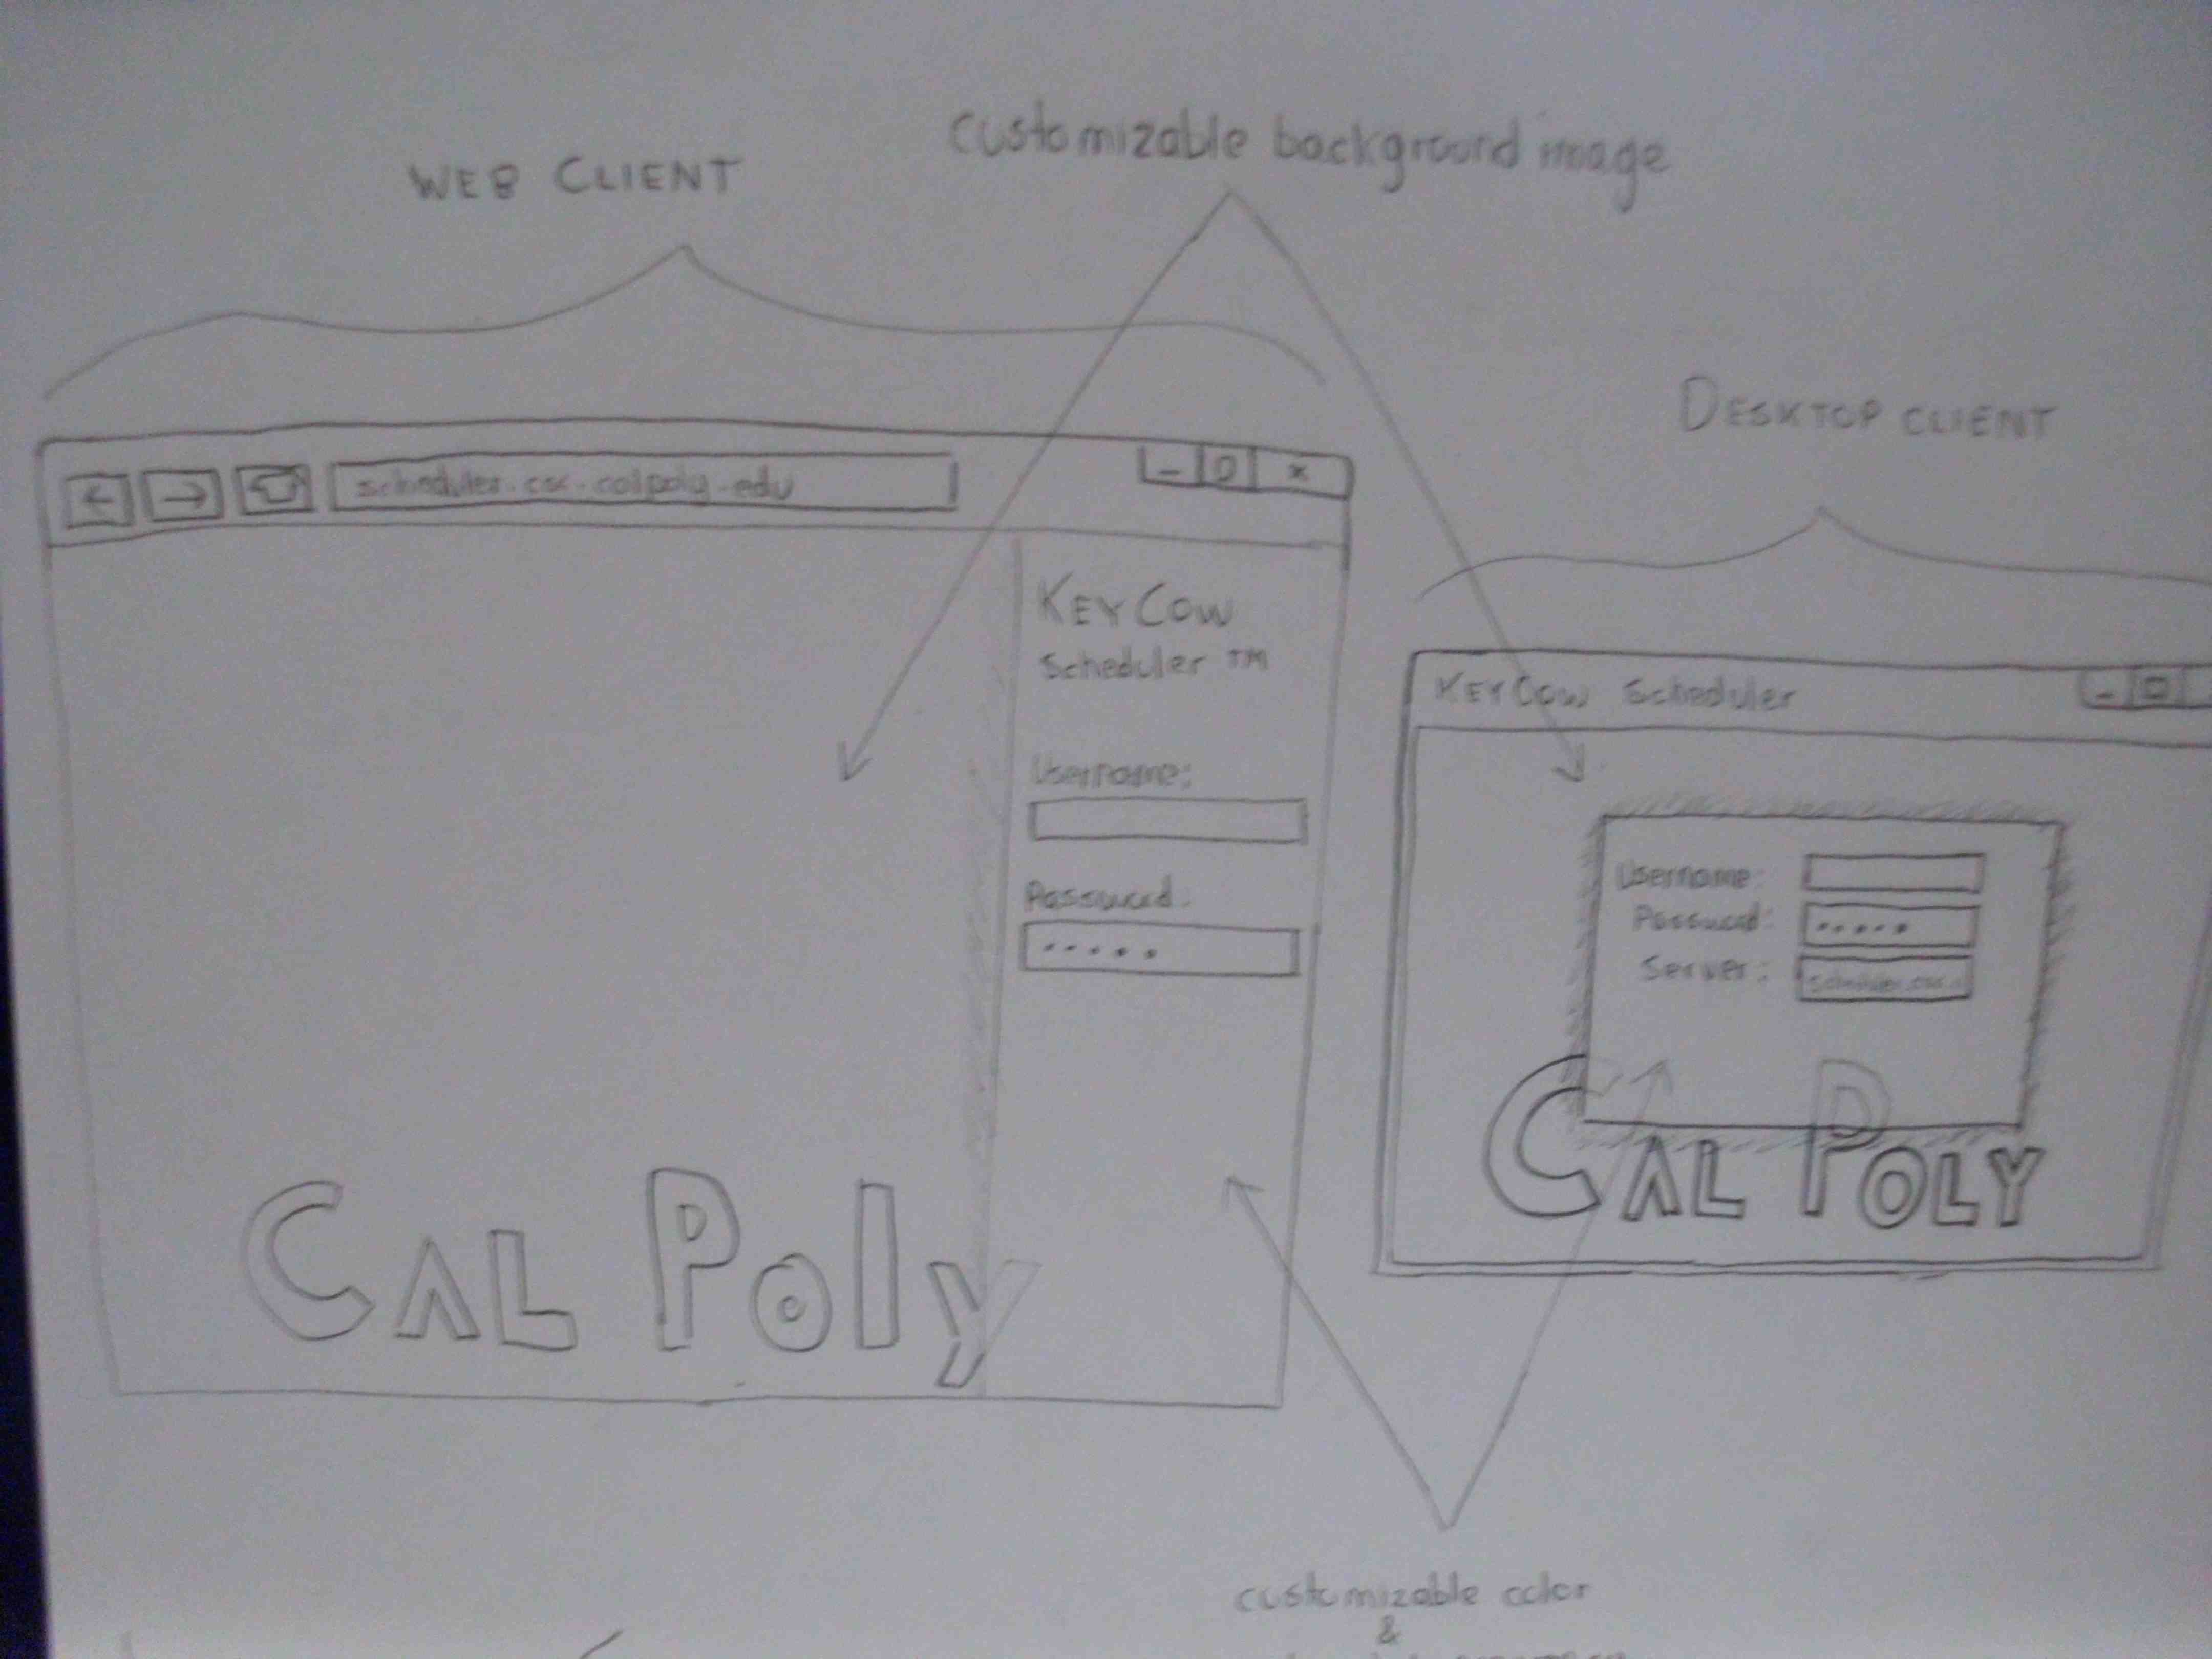 WEB CLIENT
customizable background image
DESKTOP CLIENT
scheduler.csc.calpoly.edu
KEYCOW
Scheduler ™
Username:
Password:
.....
CAL Poly
KEYCOW Scheduler
Username:
Password:
.....
Server:
scheduler.csc.
CAL POLY
customizable color
&